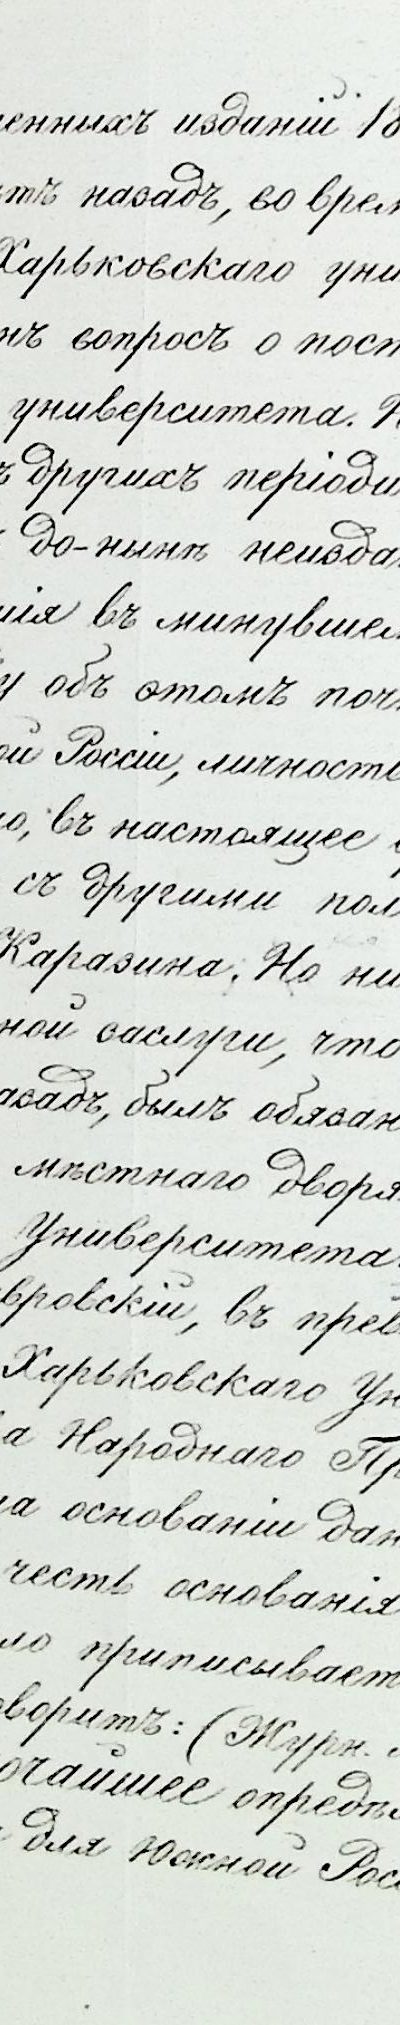 енныхъ изданій 18
ѣтъ назадъ, во врем
Харьковскаго уни
нъ вопросъ о пост
университета. Н
ъ другихъ періоди
до-нынѣ неизда
нія въ минувшем
у объ этомъ поч
ой Россіи, личность
но, въ настоящее
съ другими пол
Каразина. Но ни
ной заслуги, что
азадъ, былъ обязан
мѣстнаго дворя
Университета
авровскій, въ прев
Харьковскаго Ун
ва Народнаго Пр
на основаніи дан
честь основанія
ло приписывает
оворитъ: (Журн.
очайшее опредѣл
для Южной Росс